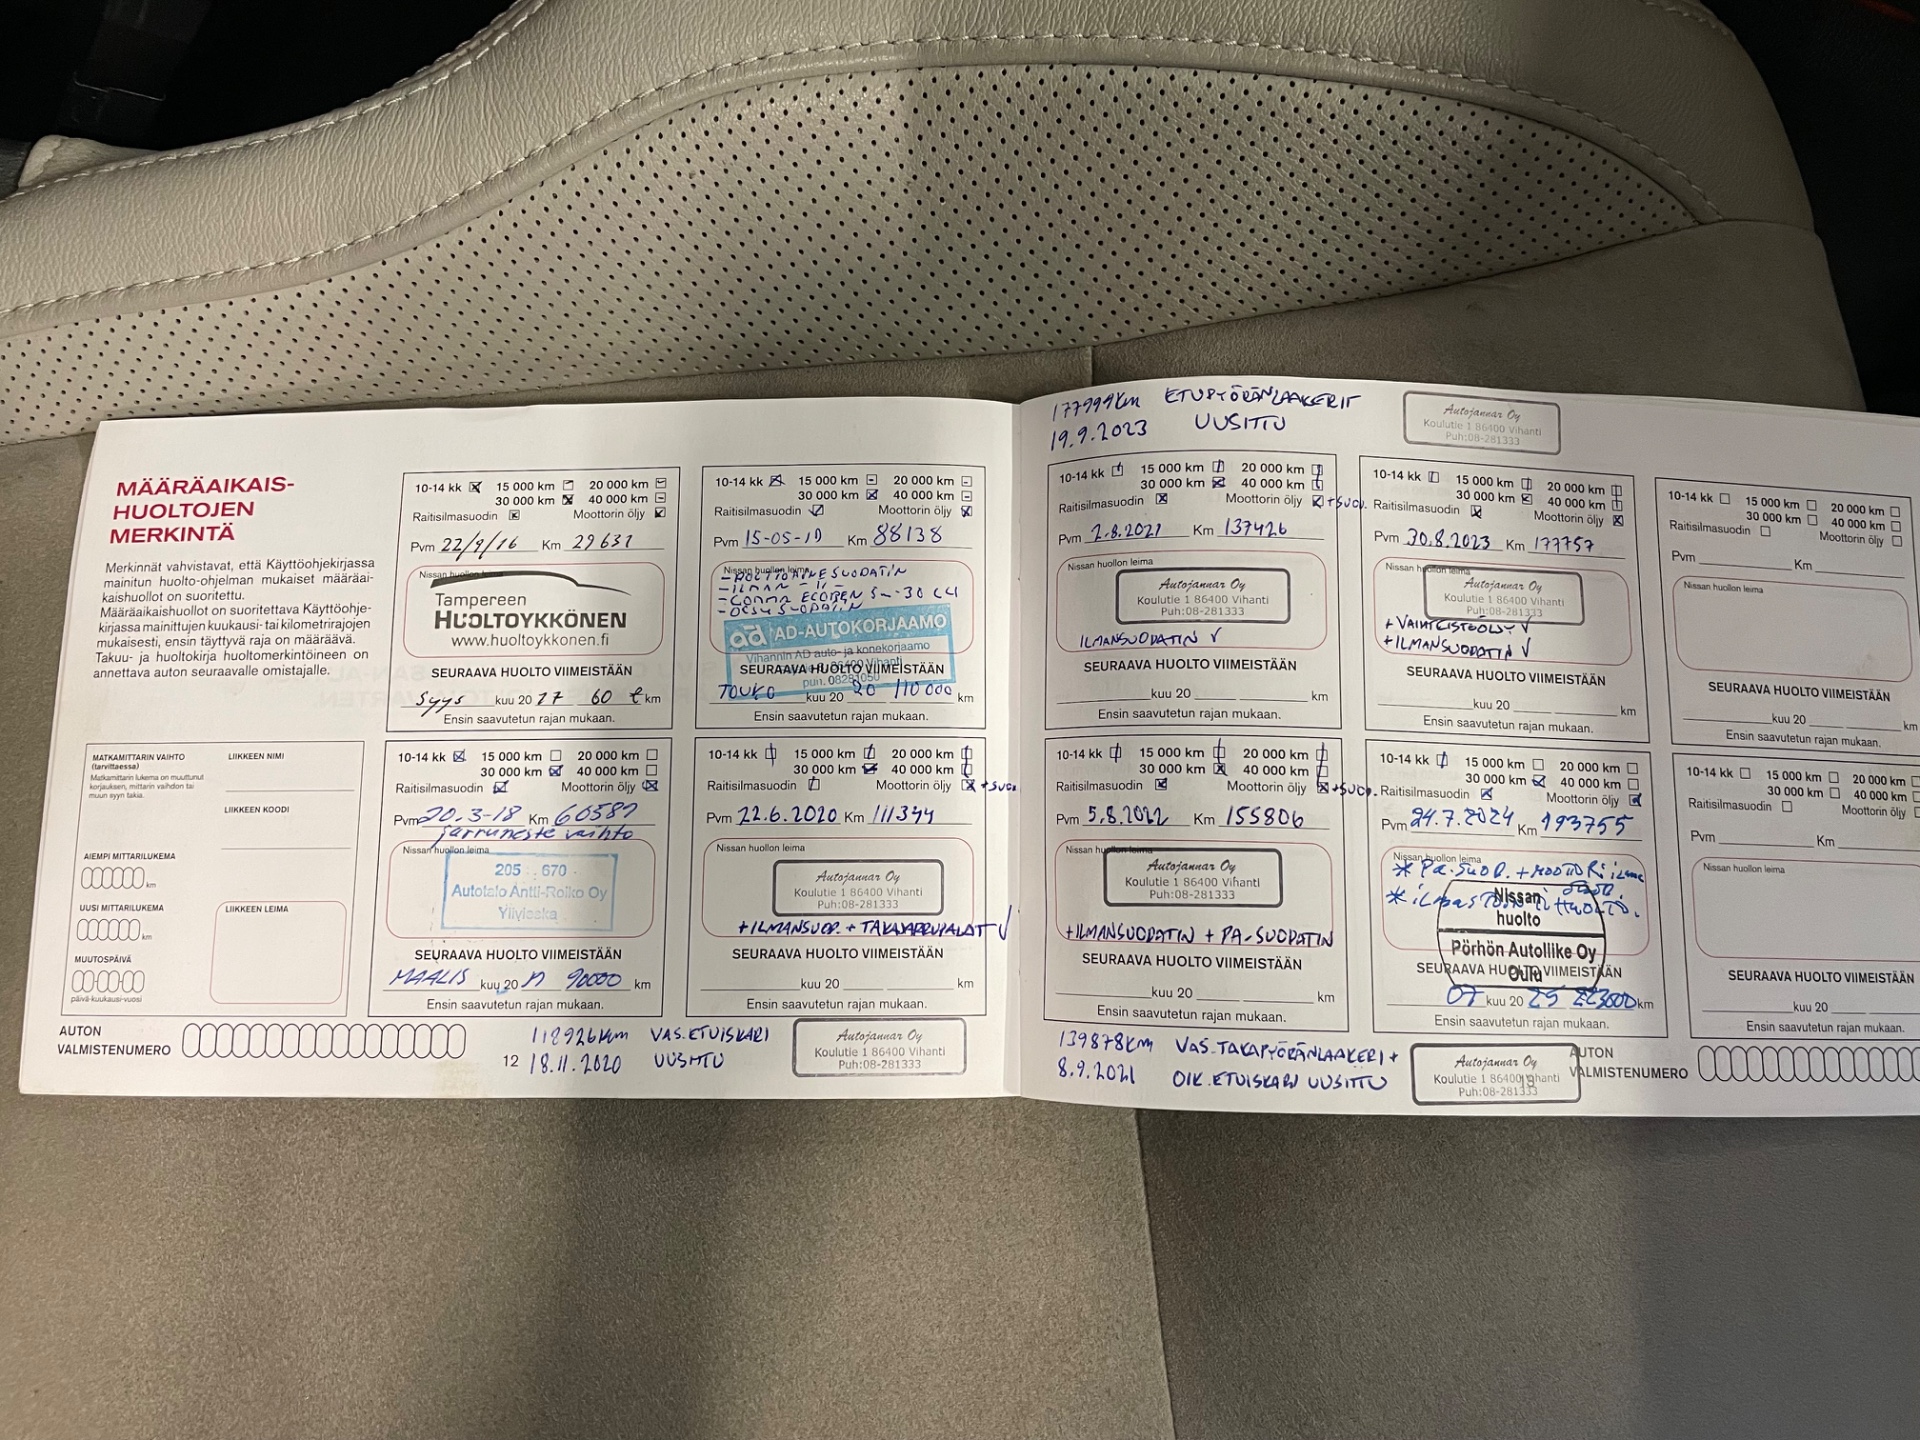 MÄÄRÄAIKAIS-
HUOLTOJEN
MERKINTÄ
Merkinnät vahvistavat, että Käyttöohjekirjassa
mainitun huolto-ohjelman mukaiset määräai-
kaishuollot on suoritettu.
Määräaikaishuollot on suoritettava Käyttöohje-
kirjassa mainittujen kuukausi- tai kilometrirajojen
mukaisesti, ensin täyttyvä raja on määräävä.
Takuu- ja huoltokirja huoltomerkintöineen on
annettava auton seuraavalle omistajalle.
MATKAMITTARIN VAIHTO
(tarvittaessa)
Matkamittarin lukema on muuttunut
korjauksen, mittarin vaihdon tai
muun syyn takia.
AIEMPI MITTARILUKEMA
km
UUSI MITTARILUKEMA
km
MUUTOSPÄIVÄ
päivä-kuukausi-vuosi
LIIKKEEN NIMI
LIIKKEEN KOODI
LIIKKEEN LEIMA
AUTON
VALMISTENUMERO
10-14 kk 15 000 km 20 000 km
30 000 km 40 000 km
Raitisilmasuodin Moottorin öljy
Pvm 22/9/16 Km 29631
Nissan huollon leima
Tampereen
HUOLTOYKKÖNEN
www.huoltoykkönen.fi
SEURAAVA HUOLTO VIIMEISTÄÄN
Syys kuu 20 17 60 t km
Ensin saavutetun rajan mukaan.
10-14 kk 15 000 km 20 000 km
30 000 km 40 000 km
Raitisilmasuodin Moottorin öljy
Pvm 15-05-19 Km 88138
Nissan huollon leima
-POLTTOAINESUODATIN
-ILMAN -11-
-ÖLJYSUODATIN
ad AD-AUTOKORJAAMO
Vihannin AD auto- ja konekorjaamo
86400 Vihanti
puh. 08281050
SEURAAVA HUOLTO VIIMEISTÄÄN
TOUKO kuu 20 20 110 000 km
Ensin saavutetun rajan mukaan.
10-14 kk 15 000 km 20 000 km
30 000 km 40 000 km
Raitisilmasuodin Moottorin öljy
Pvm 20.3-18 Km 60587
jarruneste vaihto
Nissan huollon leima
205 670
Autotalo Antti-Roiko Oy
Ylivieska
SEURAAVA HUOLTO VIIMEISTÄÄN
MAALIS kuu 20 19 90000 km
Ensin saavutetun rajan mukaan.
10-14 kk 15 000 km 20 000 km
30 000 km 40 000 km
Raitisilmasuodin Moottorin öljy +SUOD.
Pvm 22.6.2020 Km 111344
Nissan huollon leima
Autojannar Oy
Koulutie 1 86400 Vihanti
Puh:08-281333
+ILMANSUOD. + TAKAJARRUPALAT √
SEURAAVA HUOLTO VIIMEISTÄÄN
kuu 20 km
Ensin saavutetun rajan mukaan.
12
118926km VAS.ETUISKARI
18.11.2020 UUSITTU
Autojannar Oy
Koulutie 1 86400 Vihanti
Puh:08-281333
177999km ETUPYÖRÄNLAAKERIT
19.9.2023 UUSITTU
Autojannar Oy
Koulutie 1 86400 Vihanti
Puh:08-281333
10-14 kk 15 000 km 20 000 km
30 000 km 40 000 km
Raitisilmasuodin Moottorin öljy +SUOD.
Pvm 2.8.2021 Km 137426
Nissan huollon leima
Autojannar Oy
Koulutie 1 86400 Vihanti
Puh:08-281333
ILMANSUODATIN √
SEURAAVA HUOLTO VIIMEISTÄÄN
kuu 20 km
Ensin saavutetun rajan mukaan.
10-14 kk 15 000 km 20 000 km
30 000 km 40 000 km
Raitisilmasuodin Moottorin öljy
Pvm 30.8.2023 Km 177757
Nissan huollon leima
Autojannar Oy
Koulutie 1 86400 Vihanti
Puh:08-281333
+ VAIHTEISTOÖLJY √
+ILMANSUODATIN √
SEURAAVA HUOLTO VIIMEISTÄÄN
kuu 20 km
Ensin saavutetun rajan mukaan.
10-14 kk 15 000 km 20 000 km
30 000 km 40 000 km
Raitisilmasuodin Moottorin öljy
Pvm Km
Nissan huollon leima
SEURAAVA HUOLTO VIIMEISTÄÄN
kuu 20 km
Ensin saavutetun rajan mukaan.
10-14 kk 15 000 km 20 000 km
30 000 km 40 000 km
Raitisilmasuodin Moottorin öljy +SUOD.
Pvm 5.8.2022 Km 155806
Nissan huollon leima
Autojannar Oy
Koulutie 1 86400 Vihanti
Puh:08-281333
+ILMANSUODATIN + PA-SUODATIN
SEURAAVA HUOLTO VIIMEISTÄÄN
kuu 20 km
Ensin saavutetun rajan mukaan.
10-14 kk 15 000 km 20 000 km
30 000 km 40 000 km
Raitisilmasuodin Moottorin öljy
Pvm 24.7.2024 Km 193755
Nissan huollon leima
* Pa-suod. + moottori ilma
Nissan
huolto
Pörhön Autoliike Oy
Oulu
SEURAAVA HUOLTO VIIMEISTÄÄN
07 kuu 20 25 223000 km
Ensin saavutetun rajan mukaan.
10-14 kk 15 000 km 20 000 km
30 000 km 40 000
Raitisilmasuodin Moottorin öljy
Pvm Km
Nissan huollon leima
SEURAAVA HUOLTO VIIMEISTÄÄN
kuu 20
Ensin saavutetun rajan mukaan.
139878km VAS.TAKAPYÖRÄNLAAKERI +
8.9.2021 OIK.ETUISKARI UUSITTU
Autojannar Oy
Koulutie 1 86400 Vihanti
Puh:08-281333
AUTON
VALMISTENUMERO